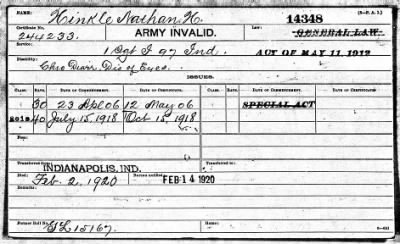 NAME: Hinkle Nathan H. 14348 (3-F.A.2.)
Certificate: 244233. ARMY INVALID. Law: GENERAL LAW.
Service: 1 Sgt I 97 Ind. ACT OF MAY 11, 1912
Disability: Chro Diarr. Dis of Eyes.
ISSUES.
CLASS. RATE. DATE OF COMMENCEMENT. DATE OF CERTIFICATE. CLASS. RATE. DATE OF COMMENCEMENT. DATE OF CERTIFICATE.
30 23 Apl 06 12 May 06 SPECIAL ACT
2018 40 July 15, 1918 Oct 15, 1918
Fee:
Transferred from INDIANAPOLIS, IND.
Died: Feb. 2, 1920 Bureau notified FEB 14 1920
Remarks:
Former Roll No. GL 15167. Home: